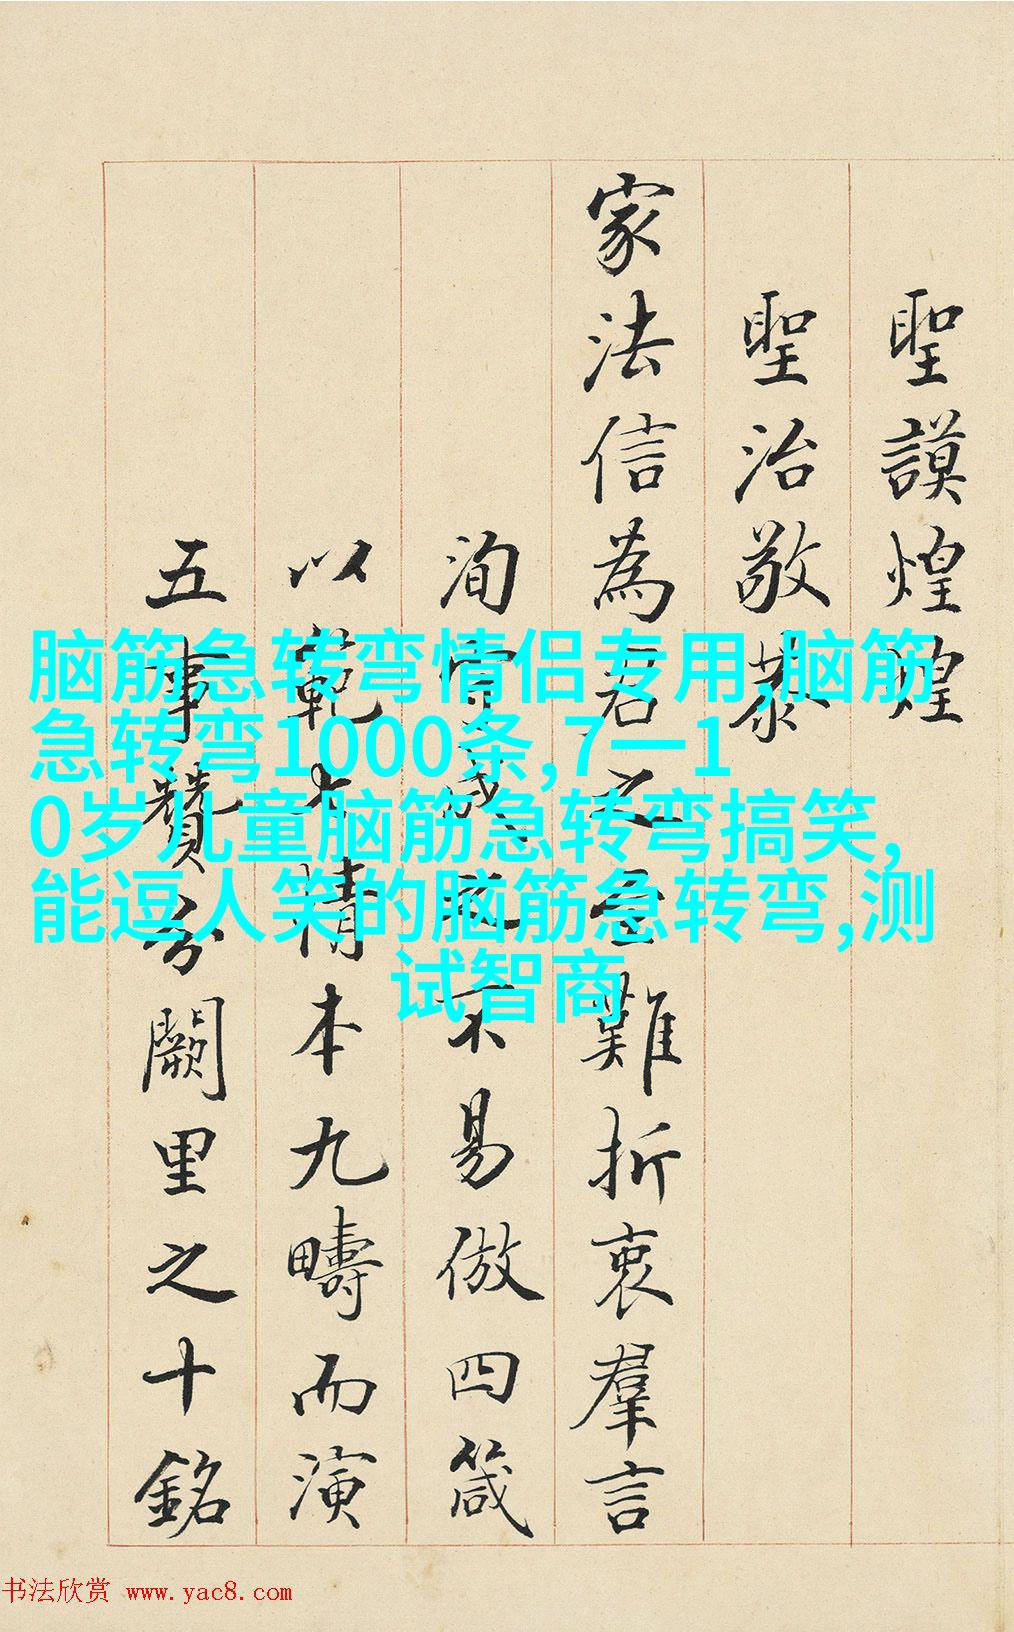 聖謨煌煌
聖治敬恭
家法信為君之難折衷羣言
洵守成之不易倣四箴
以範七情本九疇而演
五事贊分闕里之十銘
脑筋急转弯情侣专用,脑筋
急转弯1000条,7一1
0岁儿童脑筋急转弯搞笑,
能逗人笑的脑筋急转弯,测
试智商
书法欣赏 www.yac8.com